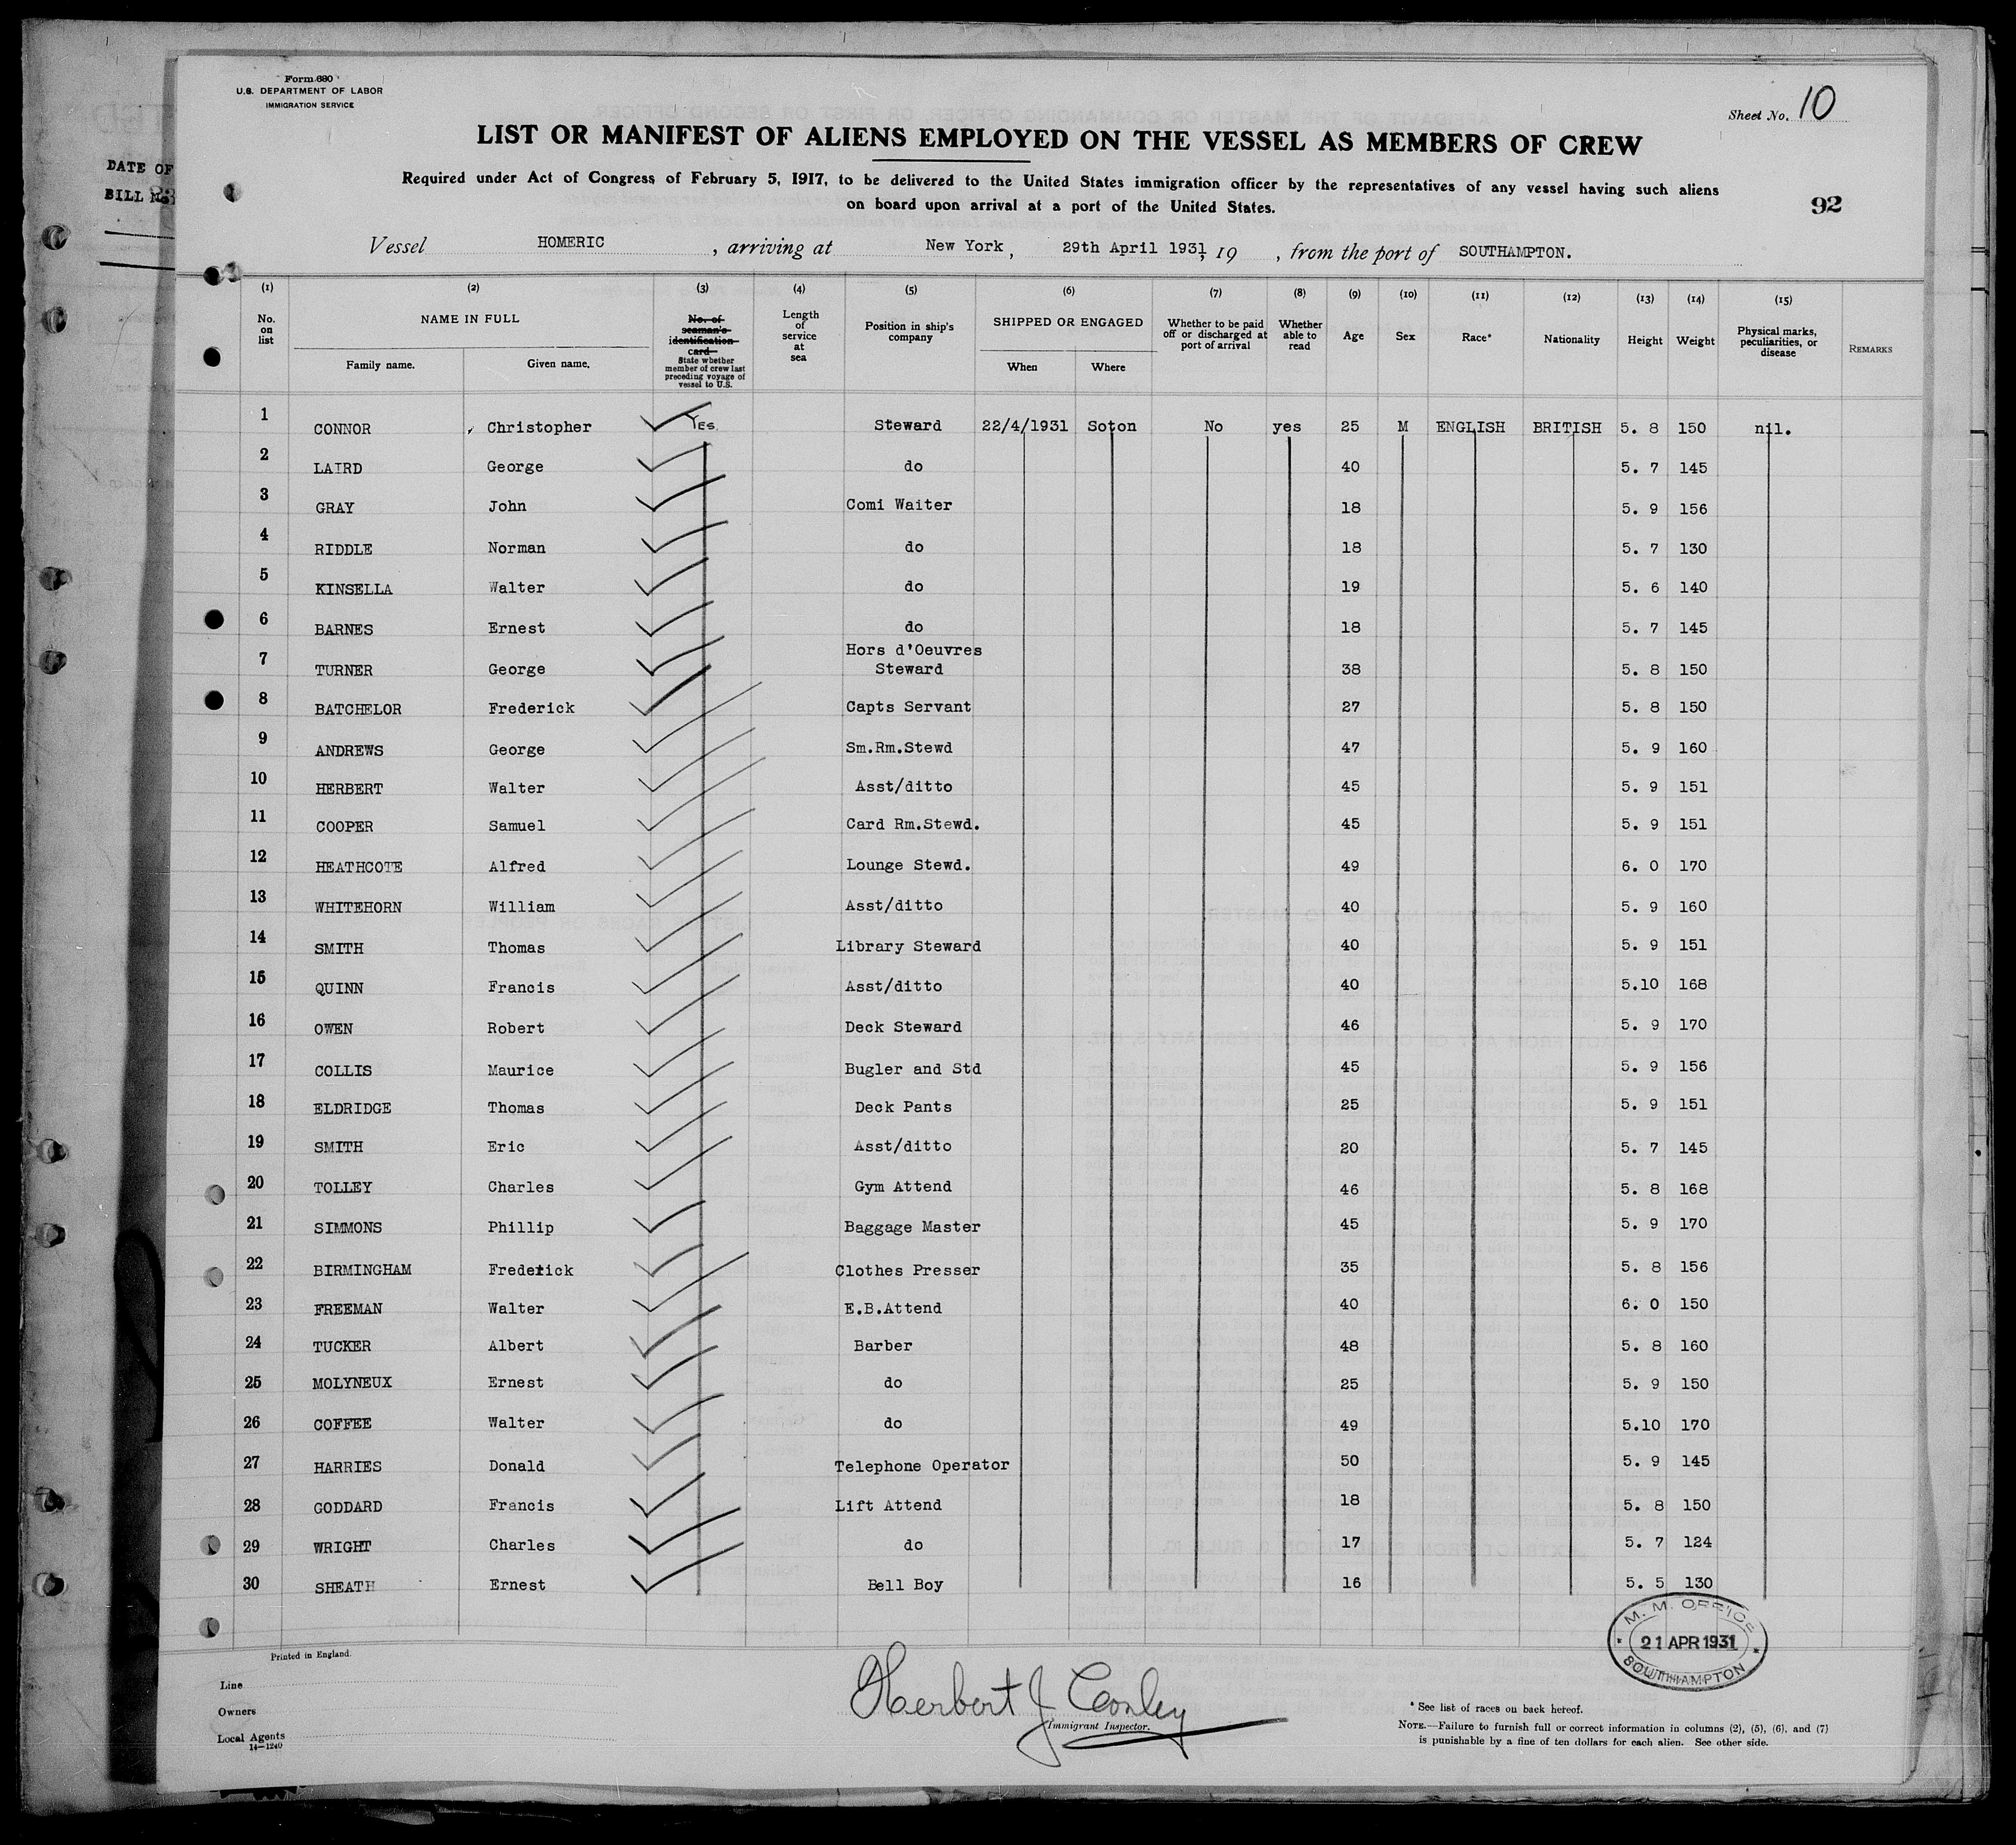 Form 680
U.S. DEPARTMENT OF LABOR
IMMIGRATION SERVICE
Sheet No. 10
LIST OR MANIFEST OF ALIENS EMPLOYED ON THE VESSEL AS MEMBERS OF CREW
Required under Act of Congress of February 5, 1917, to be delivered to the United States immigration officer by the representatives of any vessel having such aliens
on board upon arrival at a port of the United States.
92
DATE OF
BILL
Vessel HOMERIC , arriving at New York , 29th April 1931, 19 , from the port of SOUTHAMPTON.
(1) (2) (3) (4) (5) (6) (7) (8) (9) (10) (11) (12) (13) (14) (15)
No. on list NAME IN FULL Family name. Given name. No. of seaman's identification card State whether member of crew last preceding voyage of vessel to U.S. Length of service at sea Position in ship's company SHIPPED OR ENGAGED When Where Whether to be paid off or discharged at port of arrival Whether able to read Age Sex Race* Nationality Height Weight Physical marks, peculiarities, or disease REMARKS
1 CONNOR Christopher Yes Steward 22/4/1931 Soton No yes 25 M ENGLISH BRITISH 5. 8 150 nil.
2 LAIRD George do 40 5. 7 145
3 GRAY John Comi Waiter 18 5. 9 156
4 RIDDLE Norman do 18 5. 7 130
5 KINSELLA Walter do 19 5. 6 140
6 BARNES Ernest do 18 5. 7 145
7 TURNER George Hors d'Oeuvres Steward 38 5. 8 150
8 BATCHELOR Frederick Capts Servant 27 5. 8 150
9 ANDREWS George Sm.Rm.Stewd 47 5. 9 160
10 HERBERT Walter Asst/ditto 45 5. 9 151
11 COOPER Samuel Card Rm.Stewd. 45 5. 9 151
12 HEATHCOTE Alfred Lounge Stewd. 49 6. 0 170
13 WHITEHORN William Asst/ditto 40 5. 9 160
14 SMITH Thomas Library Steward 40 5. 9 151
15 QUINN Francis Asst/ditto 40 5.10 168
16 OWEN Robert Deck Steward 46 5. 9 170
17 COLLIS Maurice Bugler and Std 45 5. 9 156
18 ELDRIDGE Thomas Deck Pants 25 5. 9 151
19 SMITH Eric Asst/ditto 20 5. 7 145
20 TOLLEY Charles Gym Attend 46 5. 8 168
21 SIMMONS Phillip Baggage Master 45 5. 9 170
22 BIRMINGHAM Frederick Clothes Presser 35 5. 8 156
23 FREEMAN Walter E.B.Attend 40 6. 0 150
24 TUCKER Albert Barber 48 5. 8 160
25 MOLYNEUX Ernest do 25 5. 9 150
26 COFFEE Walter do 49 5.10 170
27 HARRIES Donald Telephone Operator 50 5. 9 145
28 GODDARD Francis Lift Attend 18 5. 8 150
29 WRIGHT Charles do 17 5. 7 124
30 SHEATH Ernest Bell Boy 16 5. 5 130
M. M. OFFICE
21 APR 1931
SOUTHAMPTON
Printed in England.
Line
Owners
Local Agents
14—1240
Herbert J Conley
Immigrant Inspector.
* See list of races on back hereof.
NOTE.—Failure to furnish full or correct information in columns (2), (5), (6), and (7)
is punishable by a fine of ten dollars for each alien. See other side.